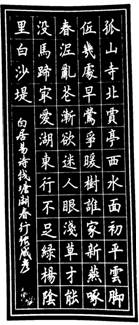 孤山寺北賈亭西水面初平雲脚
低幾處早鶯爭暖樹誰家新燕啄
春泥亂花漸欲迷人眼淺草才能
没馬蹄冣愛湖東行不足緑楊陰
里白沙堤
白居易诗钱塘湖春行